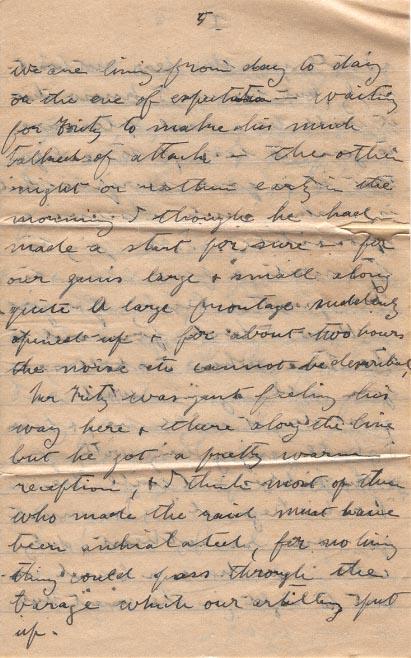 5
we are living from day to day
on the eve of expectation – waiting
for Fritz to make his much
talked of attack – the other
night or rather early in the
morning I thought he had
made a start for sure – for
our guns large & small along
quite a large frontage suddenly
opened up & for about two hours
the noise etc cannot be described,
Mr Fritz was just feeling his
way here & there along the line
but he got a pretty warm
reception, & I think most of them
who made the raid must have
been anihilated, for no living
thing could pass through the
"barage" which our artillery put
up.